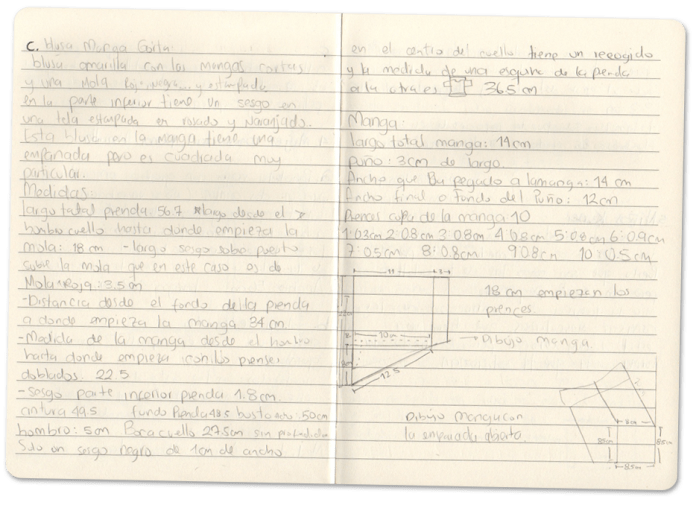 C. Blusa Manga Corta:
blusa amarilla con las mangas cortas
y una mola roja, negra, y estampada
en la parte inferior tiene un sesgo en
una tela estampada en rosado y naranjado.
Esta blusa en la manga tiene una
empinada pero es cuadrada muy
particular.
Medidas:
largo total prenda 56.7 largo desde el
hombro cuello hasta donde empieza la
mola: 18 cm - largo sesgo sobre puesto
sobre la mola que en este caso es de
Mola roja: 3.5 cm
- Distancia desde el fondo de la prenda
a donde empieza la manga 34 cm
- Medida de la manga desde el hombro
hasta donde empieza con los prenses
doblados 22.5
- Sesgo parte inferior prenda 1.8 cm
cintura 49.5 fondo Prenda 48.5 busto 50cm
hombro: 5cm Boca cuello 27.5cm sin
Solo un sesgo negro de 1cm de ancho
en el centro del cuello tiene un recogido
y la medida de una esquina de la prenda
a la otra es 36.5 cm
Manga:
largo total manga: 14cm
puño: 3cm de largo.
Ancho que va pegado a la manga: 14 cm
Ancho final o fondo del Puño: 12cm
Prenses copa de la manga 10
1: 0.3cm 2: 0.8cm 3: 0.8cm 4: 0.8cm 5: 0.8cm 6: 0.9cm
7: 0.5cm 8: 0.8cm 9: 0.8cm 10: 0.5cm
18 cm empiezan los
prenses
10cm
Dibujo manga.
12.5
Dibujo manga con
la empinada abierta.
8.5cm